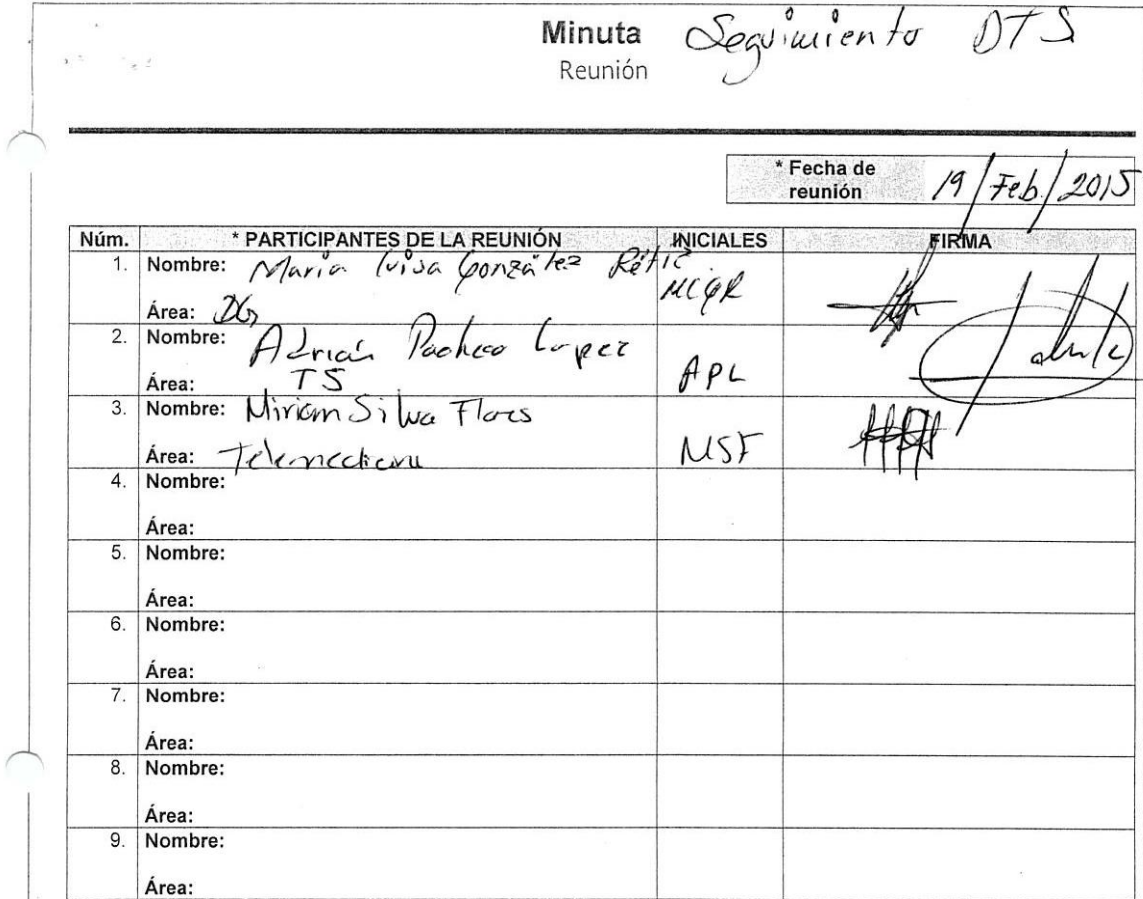 Minuta Seguimiento DTS
Reunión
* Fecha de reunión 19/Feb/2015
Núm. * PARTICIPANTES DE LA REUNIÓN INICIALES FIRMA
1. Nombre: Maria Luisa González Rétiz MLGR
Área: DG
2. Nombre: Adrián Pacheco Lopez
Área: TS APL
3. Nombre: Miriam Silva Flores
Área: Telemedicina MSF
4. Nombre:
Área:
5. Nombre:
Área:
6. Nombre:
Área:
7. Nombre:
Área:
8. Nombre:
Área:
9. Nombre:
Área: